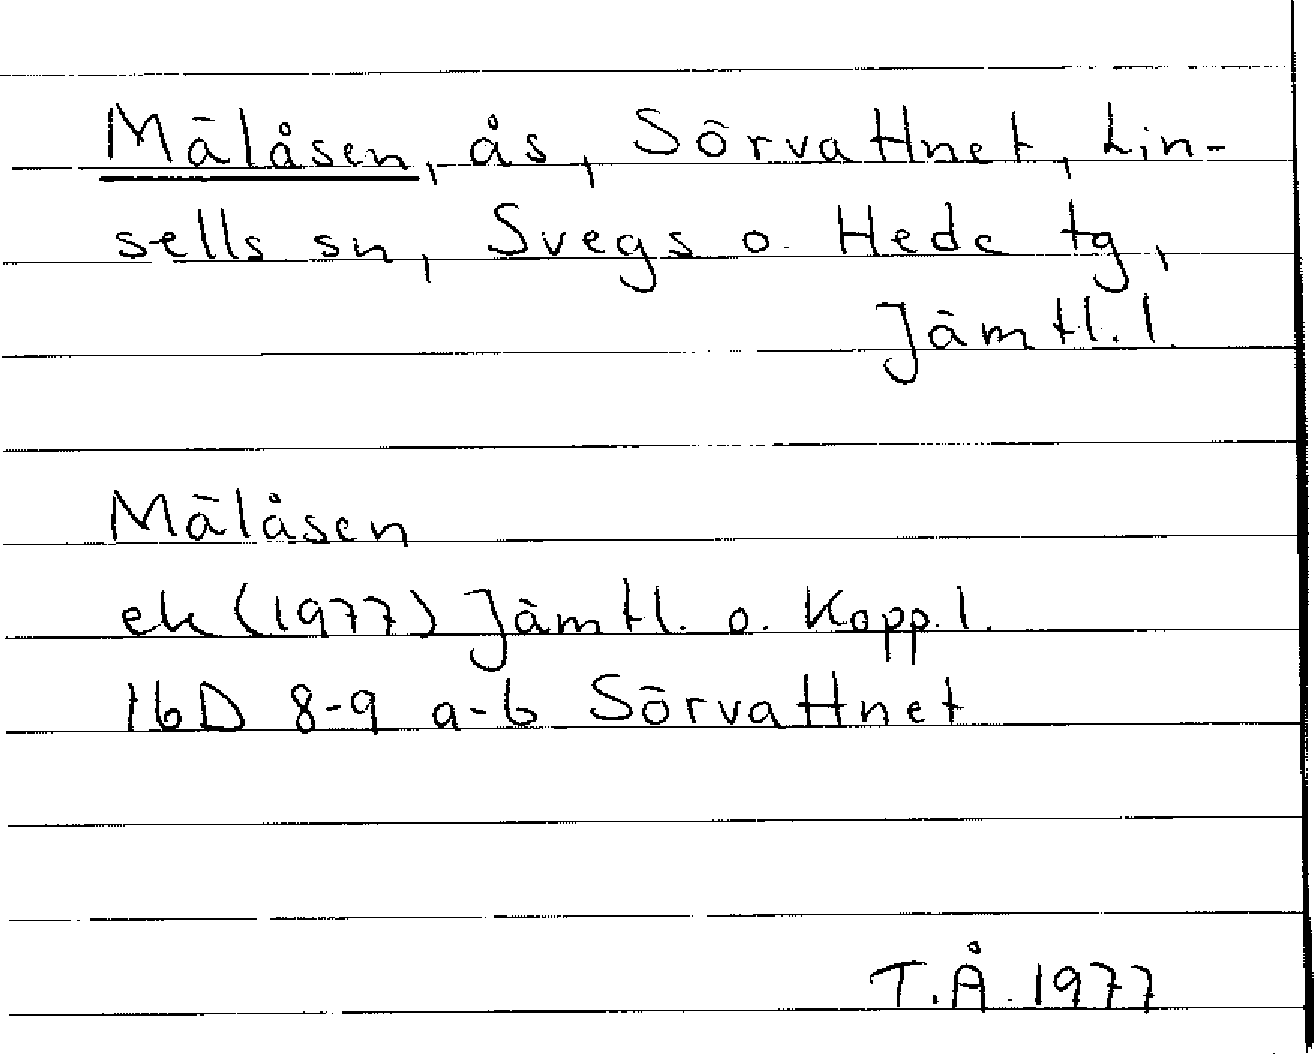 Mälåsen, ås, Sörvattnet, Lin-
sells sn, Svegs o. Hede tg,
Jämtl.l.
Mälåsen
ek (1977) Jämtl. o. Kopp.l.
16D 8-9 a-b Sörvattnet
T.Å. 1977